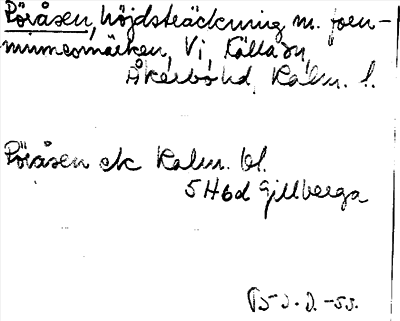 Röråsen, höjdsträckning m. forn-
minnesmärken, Vi, Källa sn,
Åkerbo hd, Kalm. l.
Röråsen ek Kalm. bl.
5H6d Gillberga